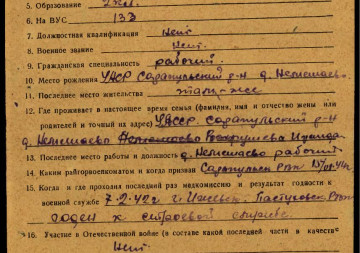 5. Образование 2 кл.
6. На ВУС 133
7. Должностная квалификация нет
8. Военное звание нет.
9. Гражданская специальность рабочий.
10. Место рождения УАССР Сарапульский р-н д. Непряево
11. Последнее место жительства там-же
12. Где проживает в настоящее время семья (фамилия, имя и отчество жены или
родителей и точный их адрес) УАССР. Сарапульский р-н
13. Последнее место работы и должность рабочий
14. Каким райгорвоенкоматом и когда призван Сарапульск РВК
15. Когда и где проходил последний раз медкомиссию и результат годности к
военной службе 7-2-42г г. Ижевск. Пастуховск РВК
годен к строевой службе.
16. Участие в Отечественной войне (в составе какой последней части и качестве
нет